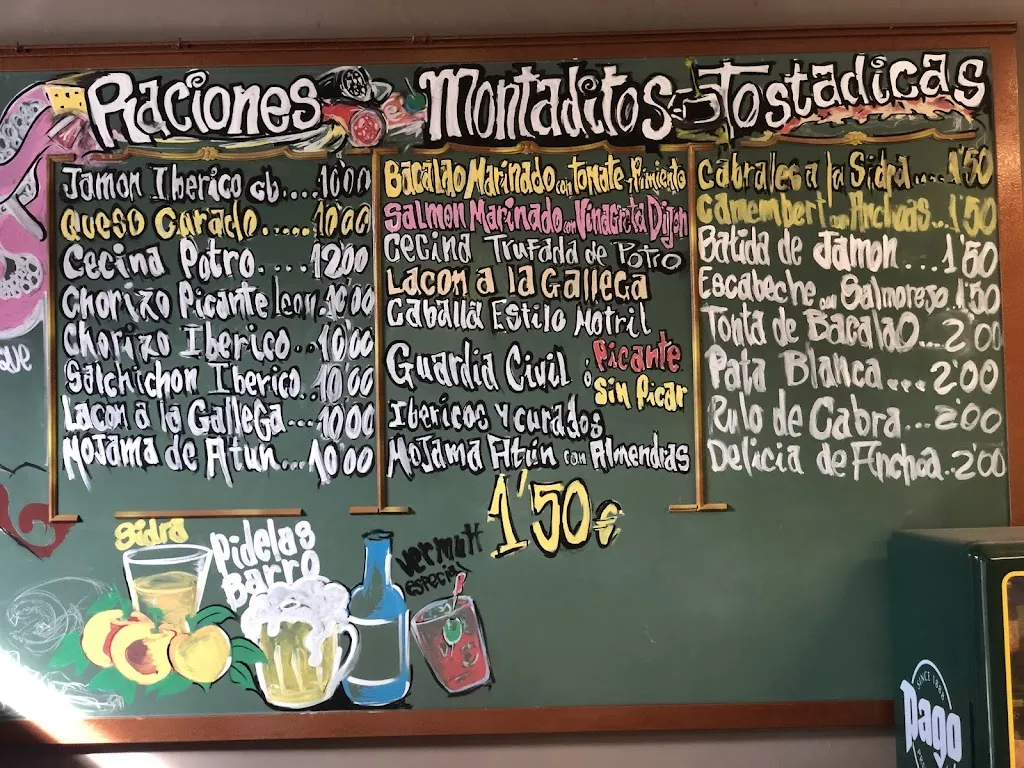 Raciones
Jamon Iberico cb....10'00
Queso Curado.....10'00
Cecina Potro....12'00
Chorizo Picante leon.10'00
Chorizo Iberico..10'00
Salchichon Iberico.10'00
Lacon a la Gallega...10'00
Mojama de Atun...10'00
Montaditos
Bacalao Marinado con Tomate y Pimiento
Salmon Marinado con Vinagreta Dijon
Cecina Trufada de Potro
Lacon a la Gallega
Caballa Estilo Motril
Guardia Civil : Picante
o Sin Picar
Ibericos y curados
Mojama Atún con Almendras
1'50€
Tostadicas
Cabrales a la Sidra....1'50
Camembert con Anchoas..1'50
Batida de Jamon...1'50
Escabeche con Salmorejo.1'50
Tonta de Bacalao...2'00
Pata Blanca...2'00
Rulo de Cabra...2'00
Delicia de Anchoa..2'00
Sidra
Pidelas
Barro
Vermutt
especial
QUE
SINCE 1888
pago